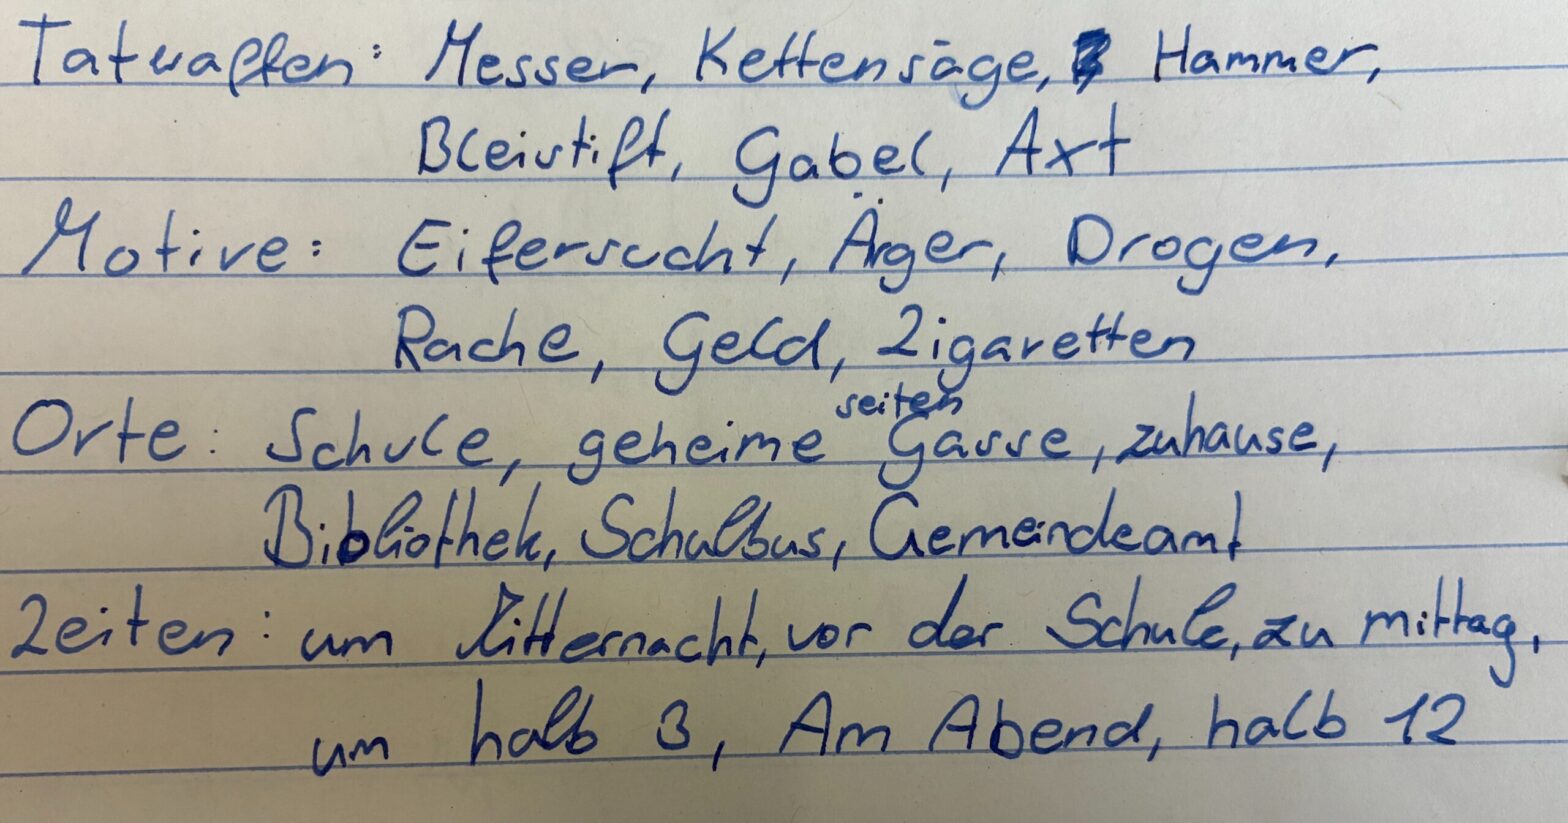 Tatwaffen: Messer, Kettensäge, Hammer,
Bleistift, Gabel, Axt
Motive: Eifersucht, Ärger, Drogen,
Rache, Geld, Zigaretten
Orte: Schule, geheime seiten Gasse, zuhause,
Bibliothek, Schulbus, Gemeindeamt
Zeiten: um Mitternacht, vor der Schule, zu mittag,
um halb 3, Am Abend, halb 12